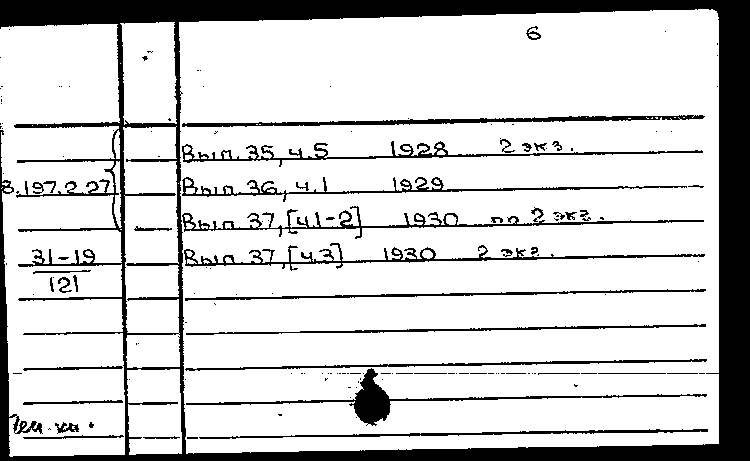 6
Вып. 35, ч.5 1928 2 экз.
В.197.2.27 Вып. 36, ч.1 1929
Вып. 37, [ч.1-2] 1930 по 2 экз.
31-19 Вып. 37, [ч.3] 1930 2 экз.
121